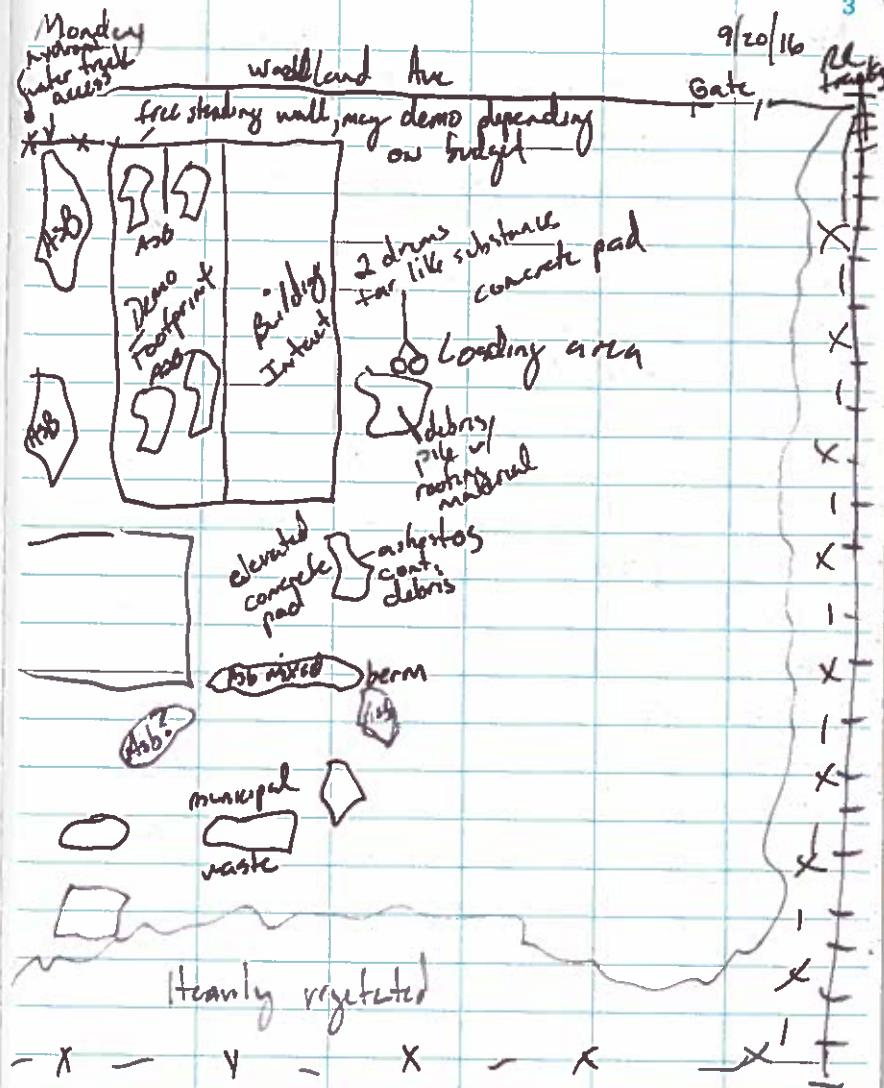 3
Monday
9/20/16
hydrant
water truck
access
RR
tracks
Woodland Ave
Gate
free standing wall, may demo depending
on budget
Asb
Asb
Demo
Footprint
Asb
Building
Intact
2 drums
tar like substance
concrete pad
Loading area
Asb
debris
pile w/
roofing
material
elevated
concrete
pad
asbestos
cont.
debris
Asb mixed
berm
Asb?
municipal
waste
Heavily vegetated